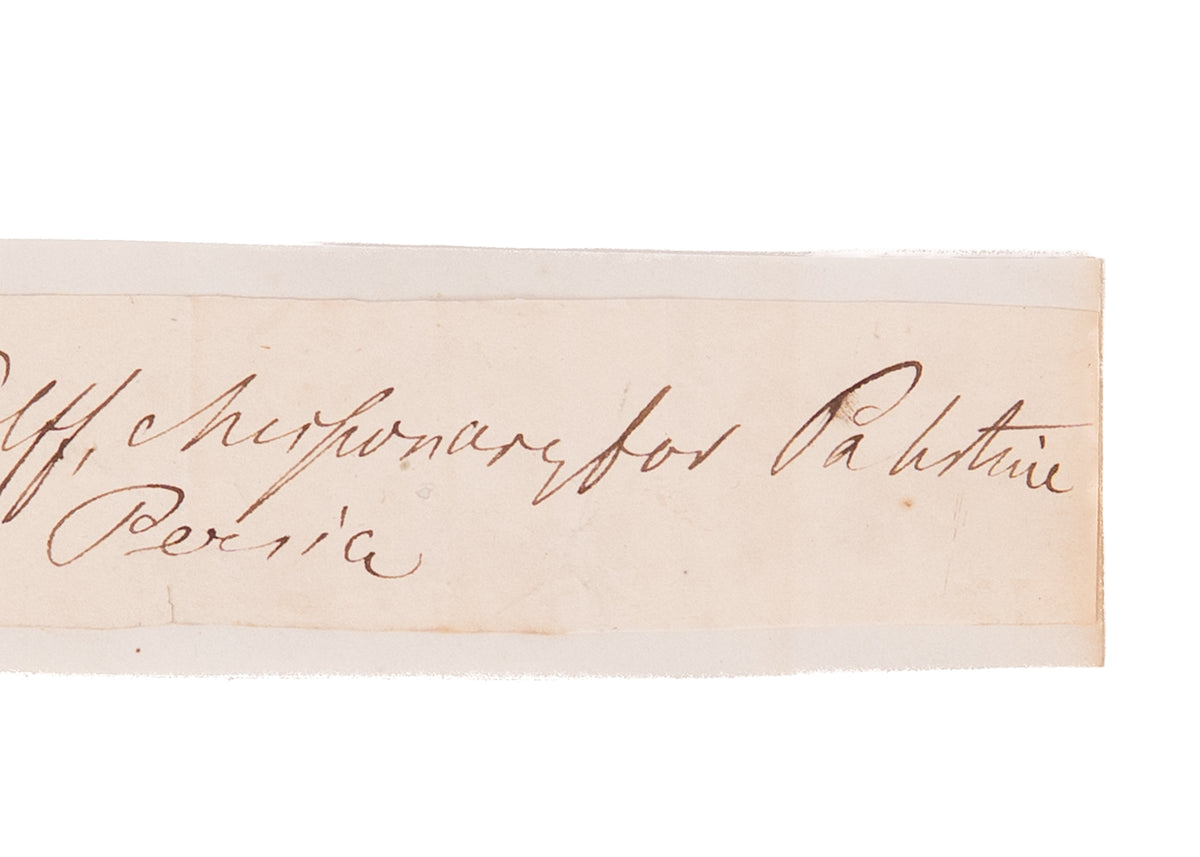 olff, Missionary for Palestine
Persia